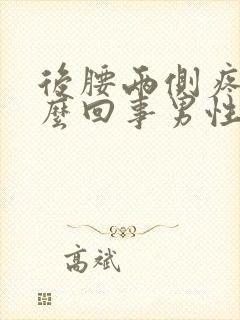 後腰兩側疼
麼回事男性
高斌